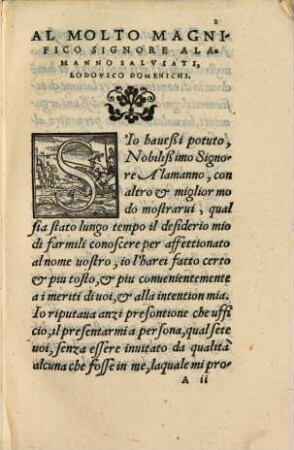 2
AL MOLTO MAGNI-
FICO SIGNORE ALA-
MANNO SALVIATI,
LODOVICO DOMENICHI.
S'Io hauessi potuto,
Nobilissimo Signo-
re Alamanno, con
altro & miglior mo
do mostrarui, qual
sia stato lungo tempo il desiderio mio
di farmili conoscere per affettionato
al nome uostro, io l'harei fatto certo
& piu tosto, & piu conuenientemente
a i meriti di uoi, & alla intention mia.
Io riputaua anzi presontione che uffi
cio, il presentarmi a persona, qual sete
uoi, senza essere inuitato da qualità
alcuna che fosse in me, laquale mi pro-
A ii